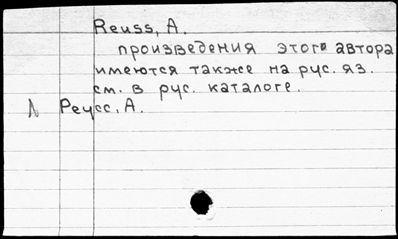 Reuss, A.
произведения этого автора
имеются также на рус. яз.
см. в рус. каталоге.
Реусс, А.